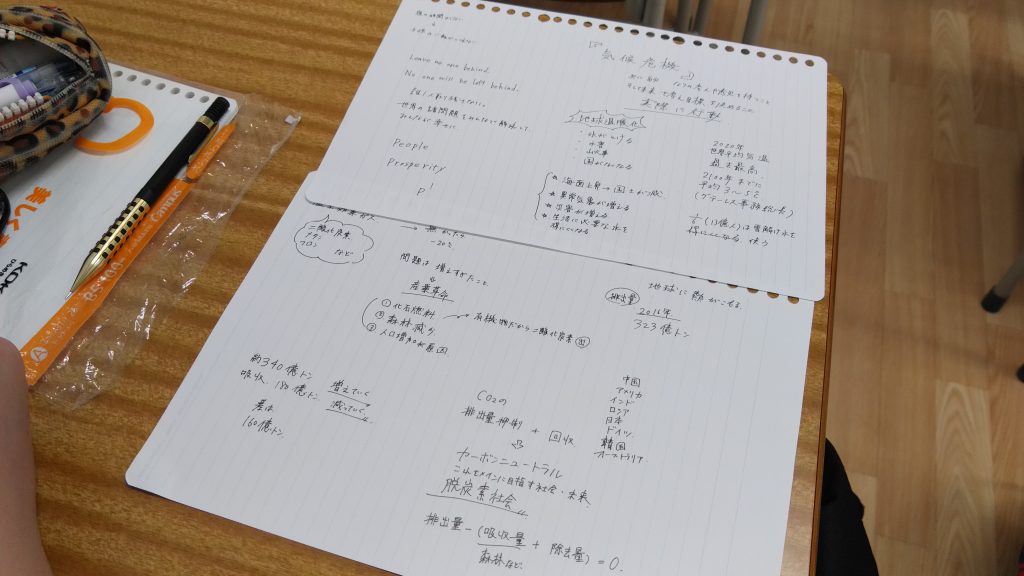 Leave no one behind.
No one will be left behind.
誰1人取り残さない。
世界の諸問題をみんなで解決して、
みんなが幸せに
People
Prosperity
P!
気候危機
実際に行動
地球温暖化
・氷がとける
・水害
・山火事
・国がなくなる
★海面上昇→国土が減
★異常気象が増える
★災害が増える
★生活に必要な水を
得にくくなる
2020年
世界平均気温
過去最高
2100年までに
平均3〜5℃
(グテーレス事務総長)
1/6(13億人)は雪解け水を
得にくくなる 使う
二酸化炭素
メタン
フロン
など
→無かったら
-20℃
問題は増えすぎたこと
産業革命
①化石燃料
②森林減少 → 有機物だから二酸化炭素出
③人口増加が原因
地球に熱がこもる
排出量
2016年
323億トン
中国
アメリカ
インド
ロシア
日本
ドイツ
韓国
オーストラリア
約340億トン
吸収、180億トン
増えていく
減っていく
差は
160億トン
CO2の
排出量抑制 + 回収
カーボンニュートラル
これをメインに目指す社会・未来
脱炭素社会
排出量-(吸収量 + 除去量)=0.
森林など
KOKUYO